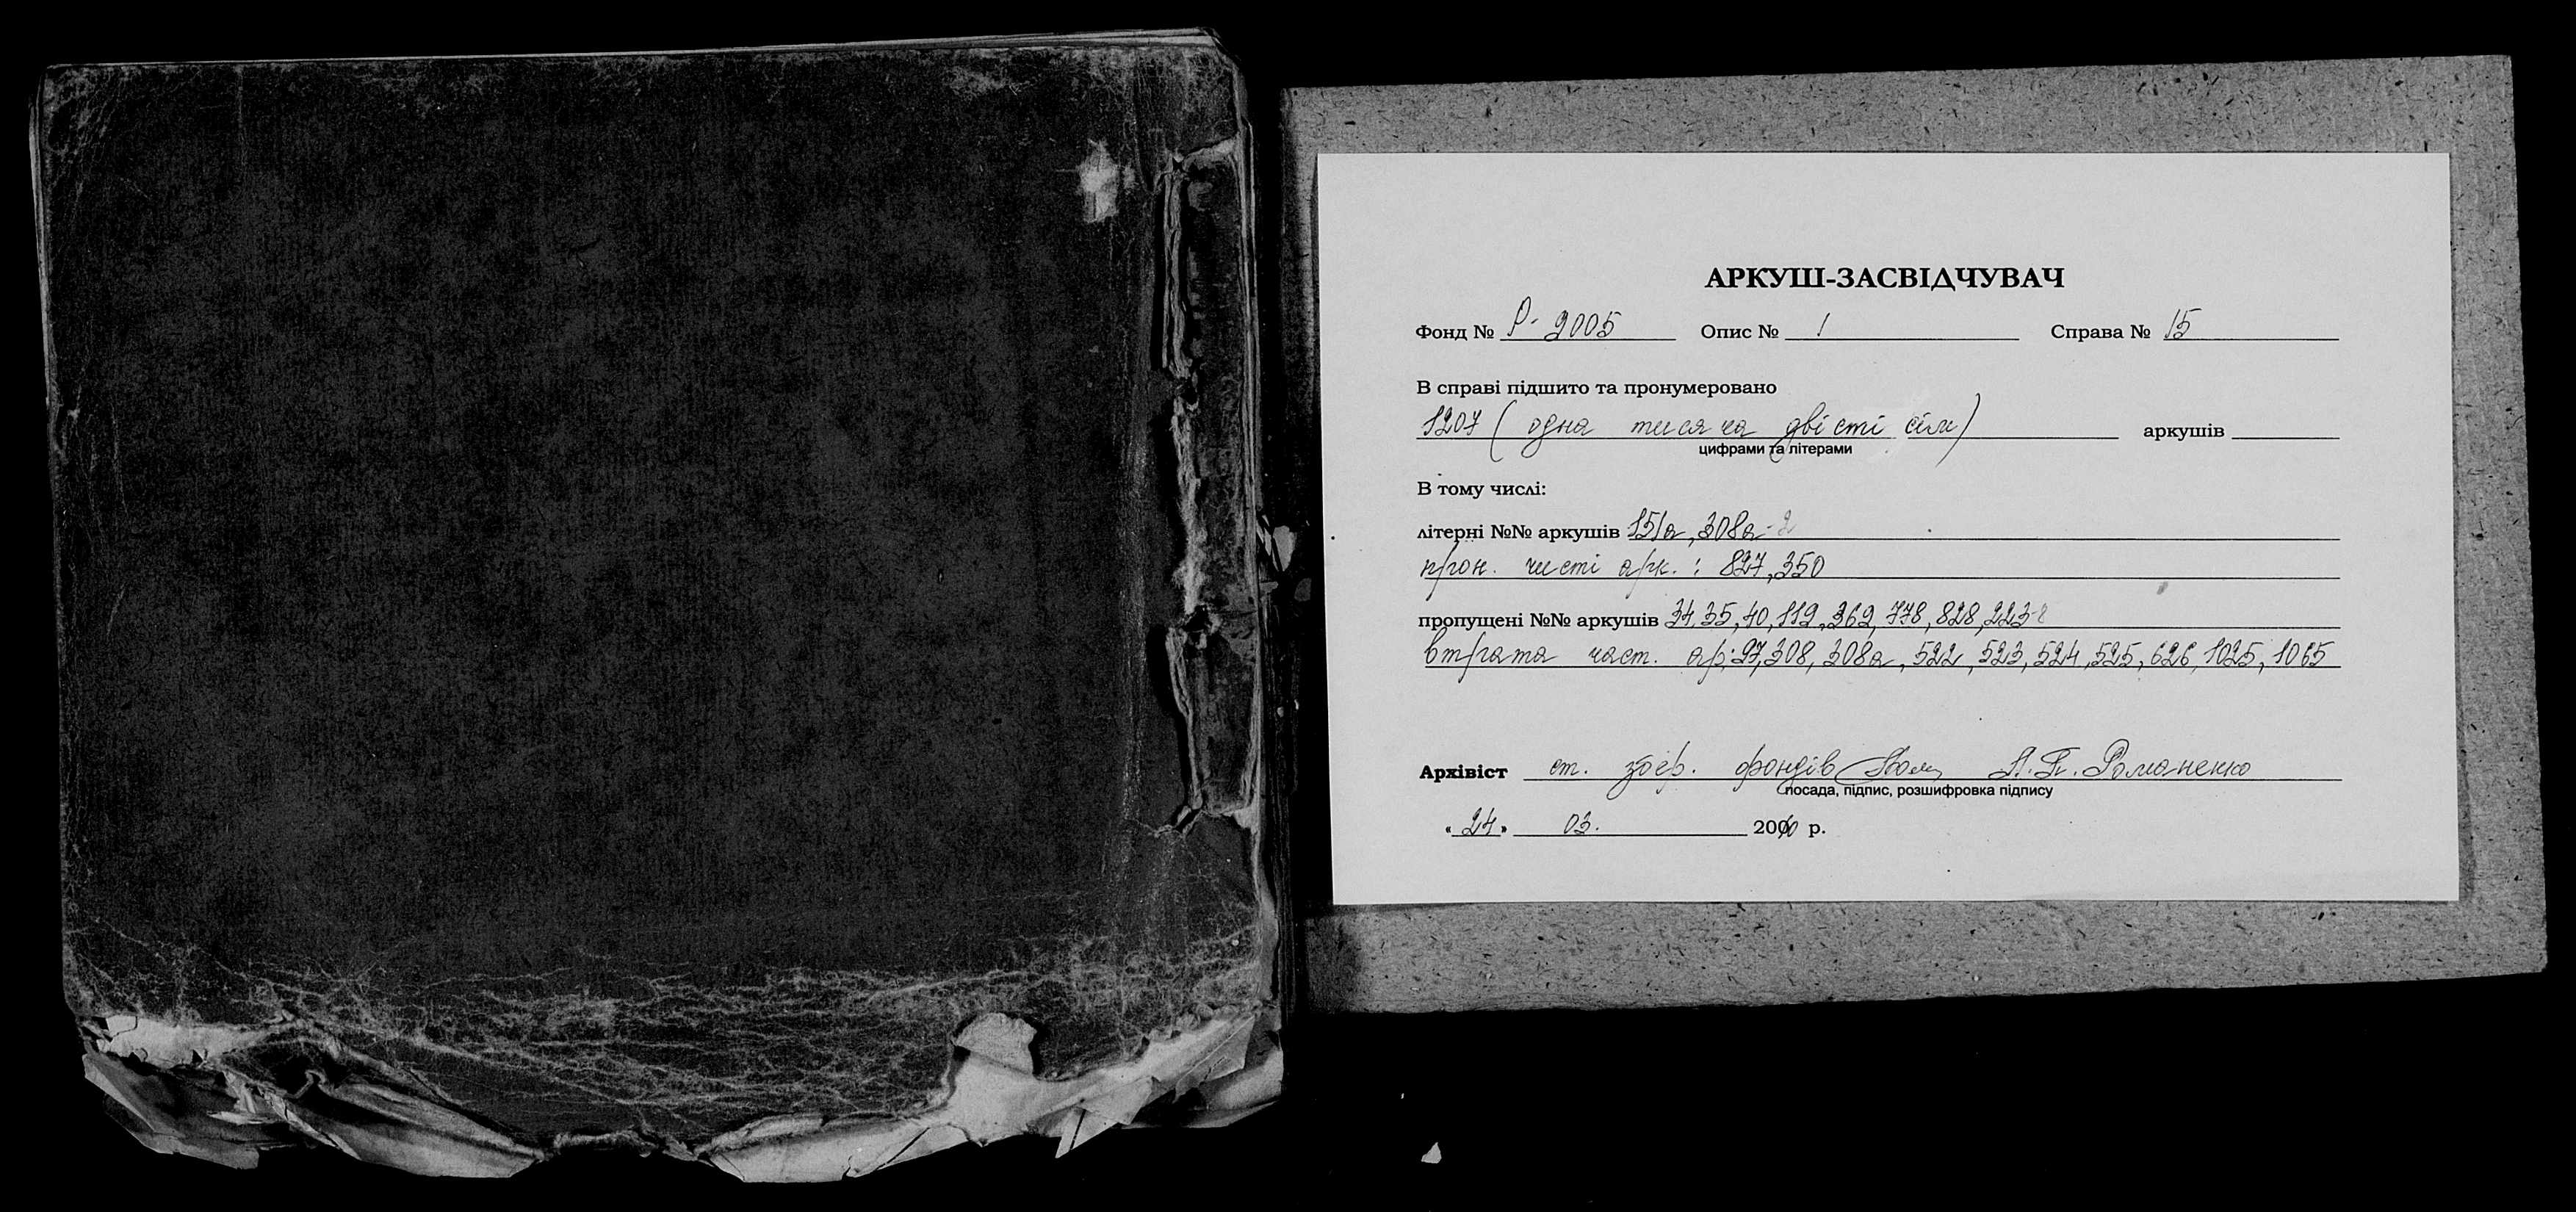 АРКУШ-ЗАСВІДЧУВАЧ
Фонд № Р- 2005 Опис № 1 Справа № 15
В справі підшито та пронумеровано
1207 (одна тисяча двісті сім) аркушів
цифрами та літерами
В тому числі:
літерні №№ аркушів 151а, 308а -2
прон. чисті арк. : 827, 350
пропущені №№ аркушів 34, 35, 40, 119, 369, 778, 828, 223 -8
втрата част. ар: 97, 308, 308а, 522, 523, 524, 525, 626, 1025, 1065
Архівіст ст. збер. фондів Романенко
посада, підпис, розшифровка підпису
« 24 » 03. 2010 р.